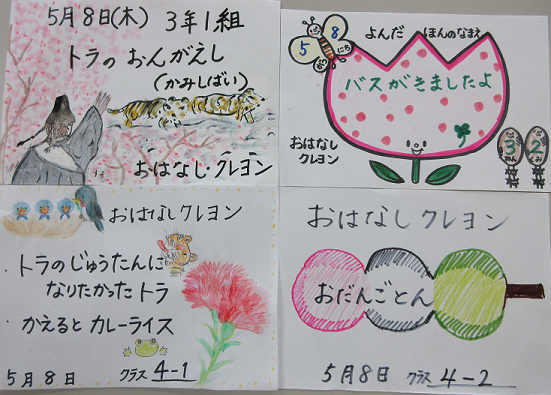 5月8日(木) 3年1組
トラの おんがえし
(かみしばい)
おはなし・クレヨン
5がつ8にち
よんだ ほんのなまえ
バスが きましたよ
おはなし
クレヨン
3ねん
2くみ
おはなしクレヨン
・トラのじゅうたんに
なりたかったトラ
・かえると カレーライス
5月8日 クラス 4-1
おはなしクレヨン
おだんごとん
5月8日 クラス 4-2